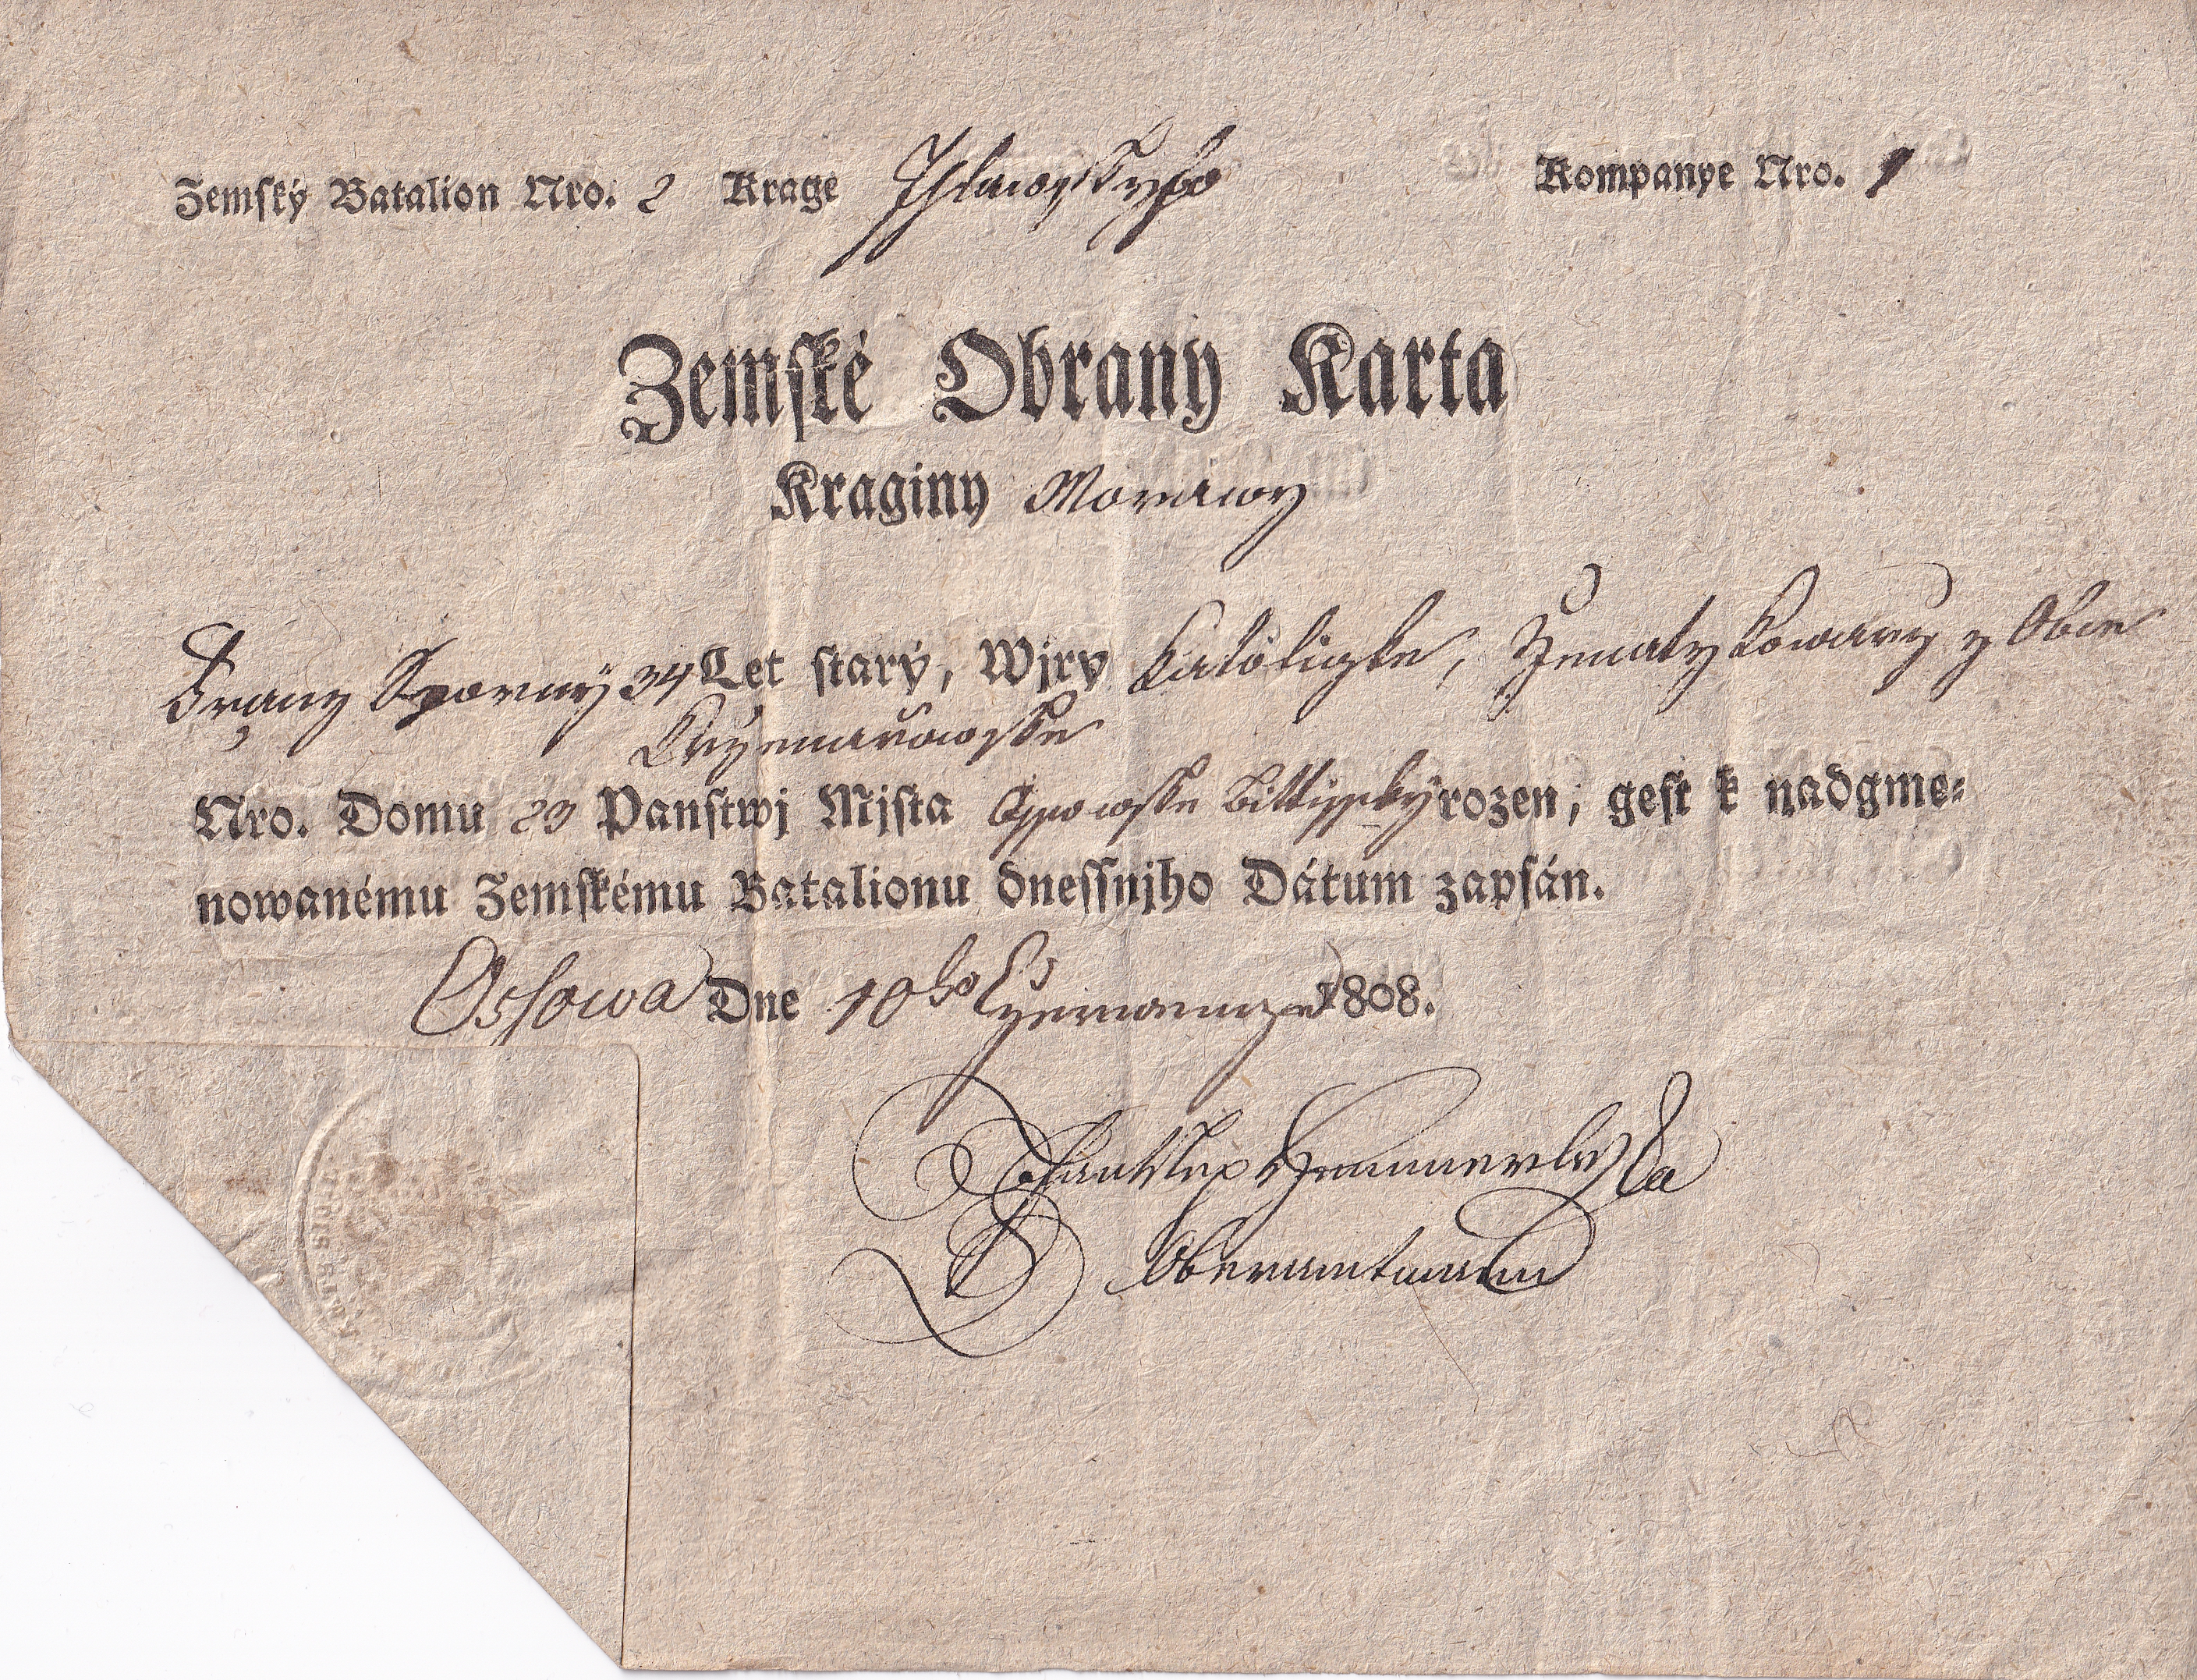 Zemský Batalion Nro. 2 Krage Jhlawskyho Kompanye Nro. 1
Zemské Obrany Karta
Kraginy Morawy
Franz 34 Let starý, Wjry Katoligke, Ženaty z Obce
Nro. Domu 23 Panstwj Mjsta rozen, gest k nadgme⸗
nowanému Zemskému Batalionu dnessnjho Dátum zapsán.
Ossowa Dne 10ho 1808.
Oberamtmann